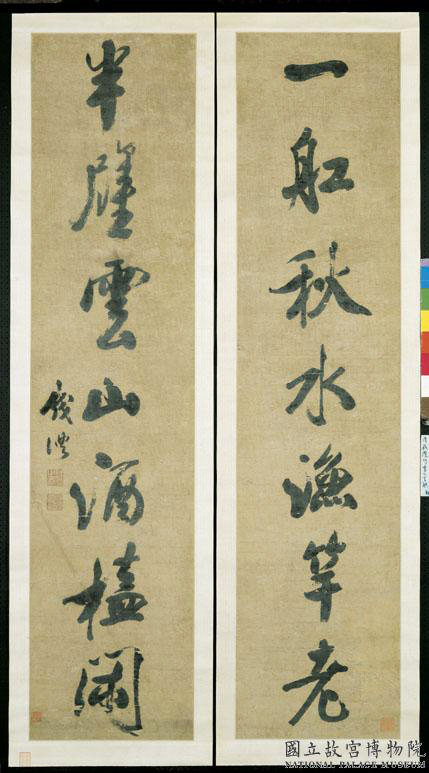 一舡秋水漁竿老
半雲山酒榼闌
錢灃
國立故宮博物院
NATIONAL PALACE MUSEUM